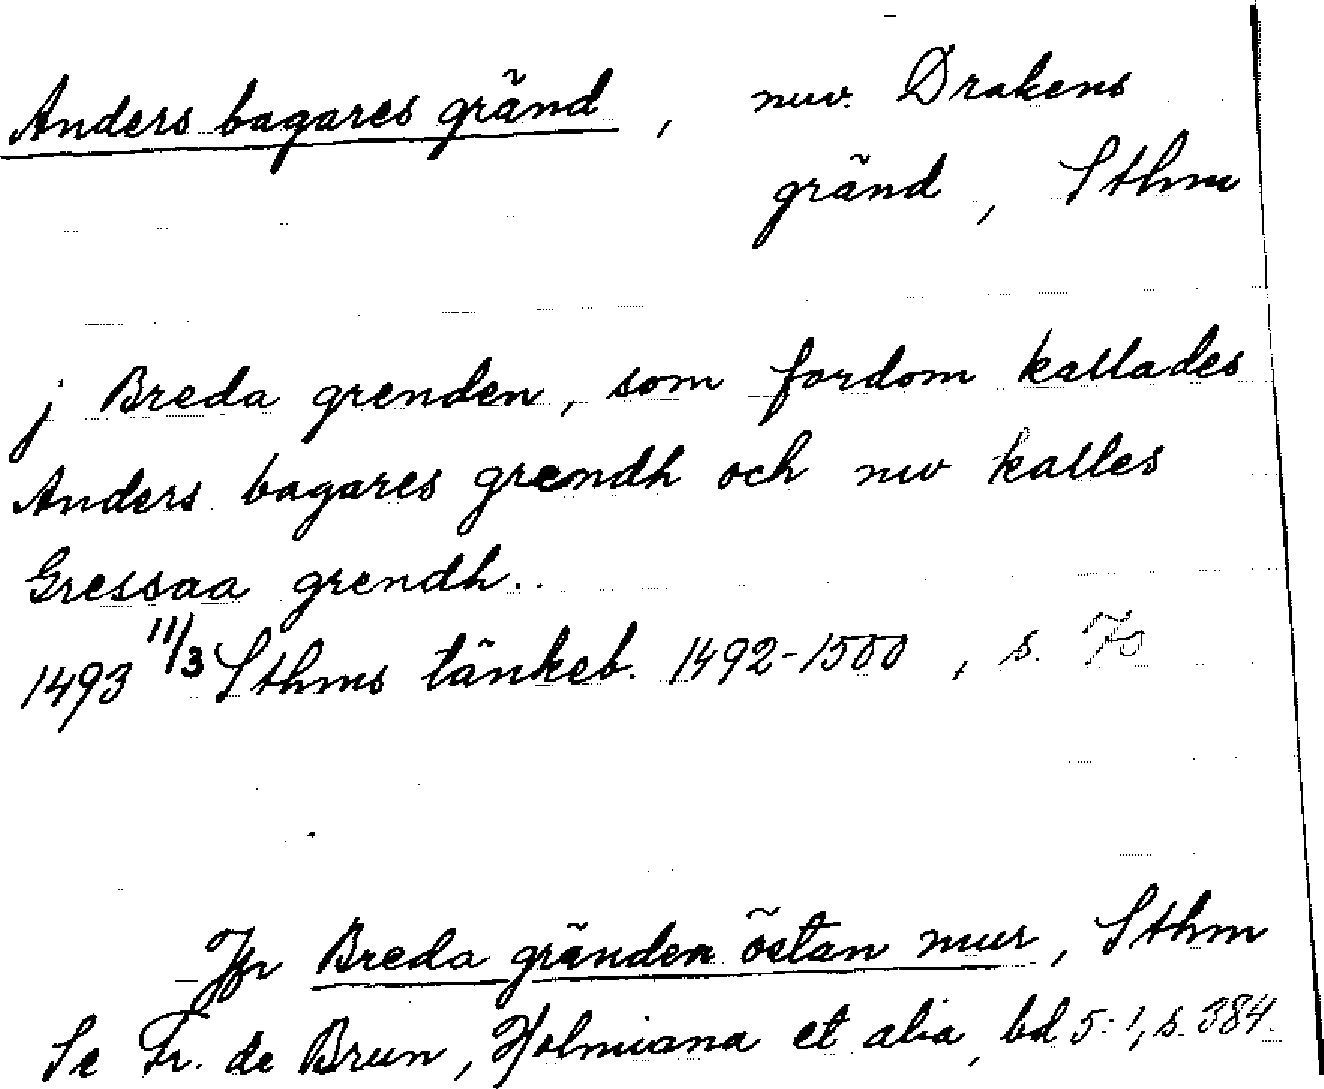 Anders bagares gränd, nuv. Drakens
gränd, Sthm
j Breda grenden, som fordom kallades
Anders bagares grendh och nw kalles
Gressaa grendh..
1493 11/3 Sthms tänkeb. 1492-1500, s.
Jfr Breda gränden östan mur, Sthm
Se Fr. de Brun, Holmiana et alia, bd 5:1, s. 384.